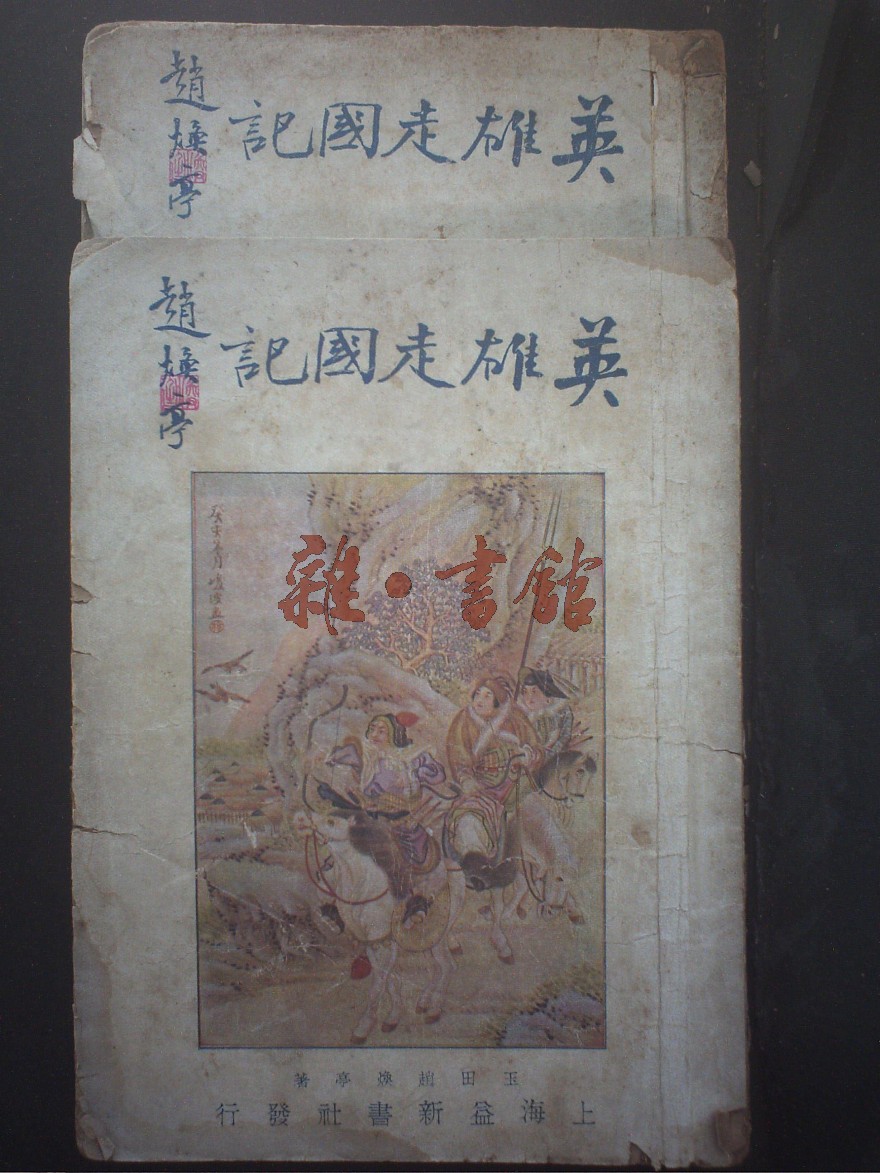 英雄走國記
趙煥亭
英雄走國記
趙煥亭
雜·書館
玉田趙煥亭著
上海益新書社發行